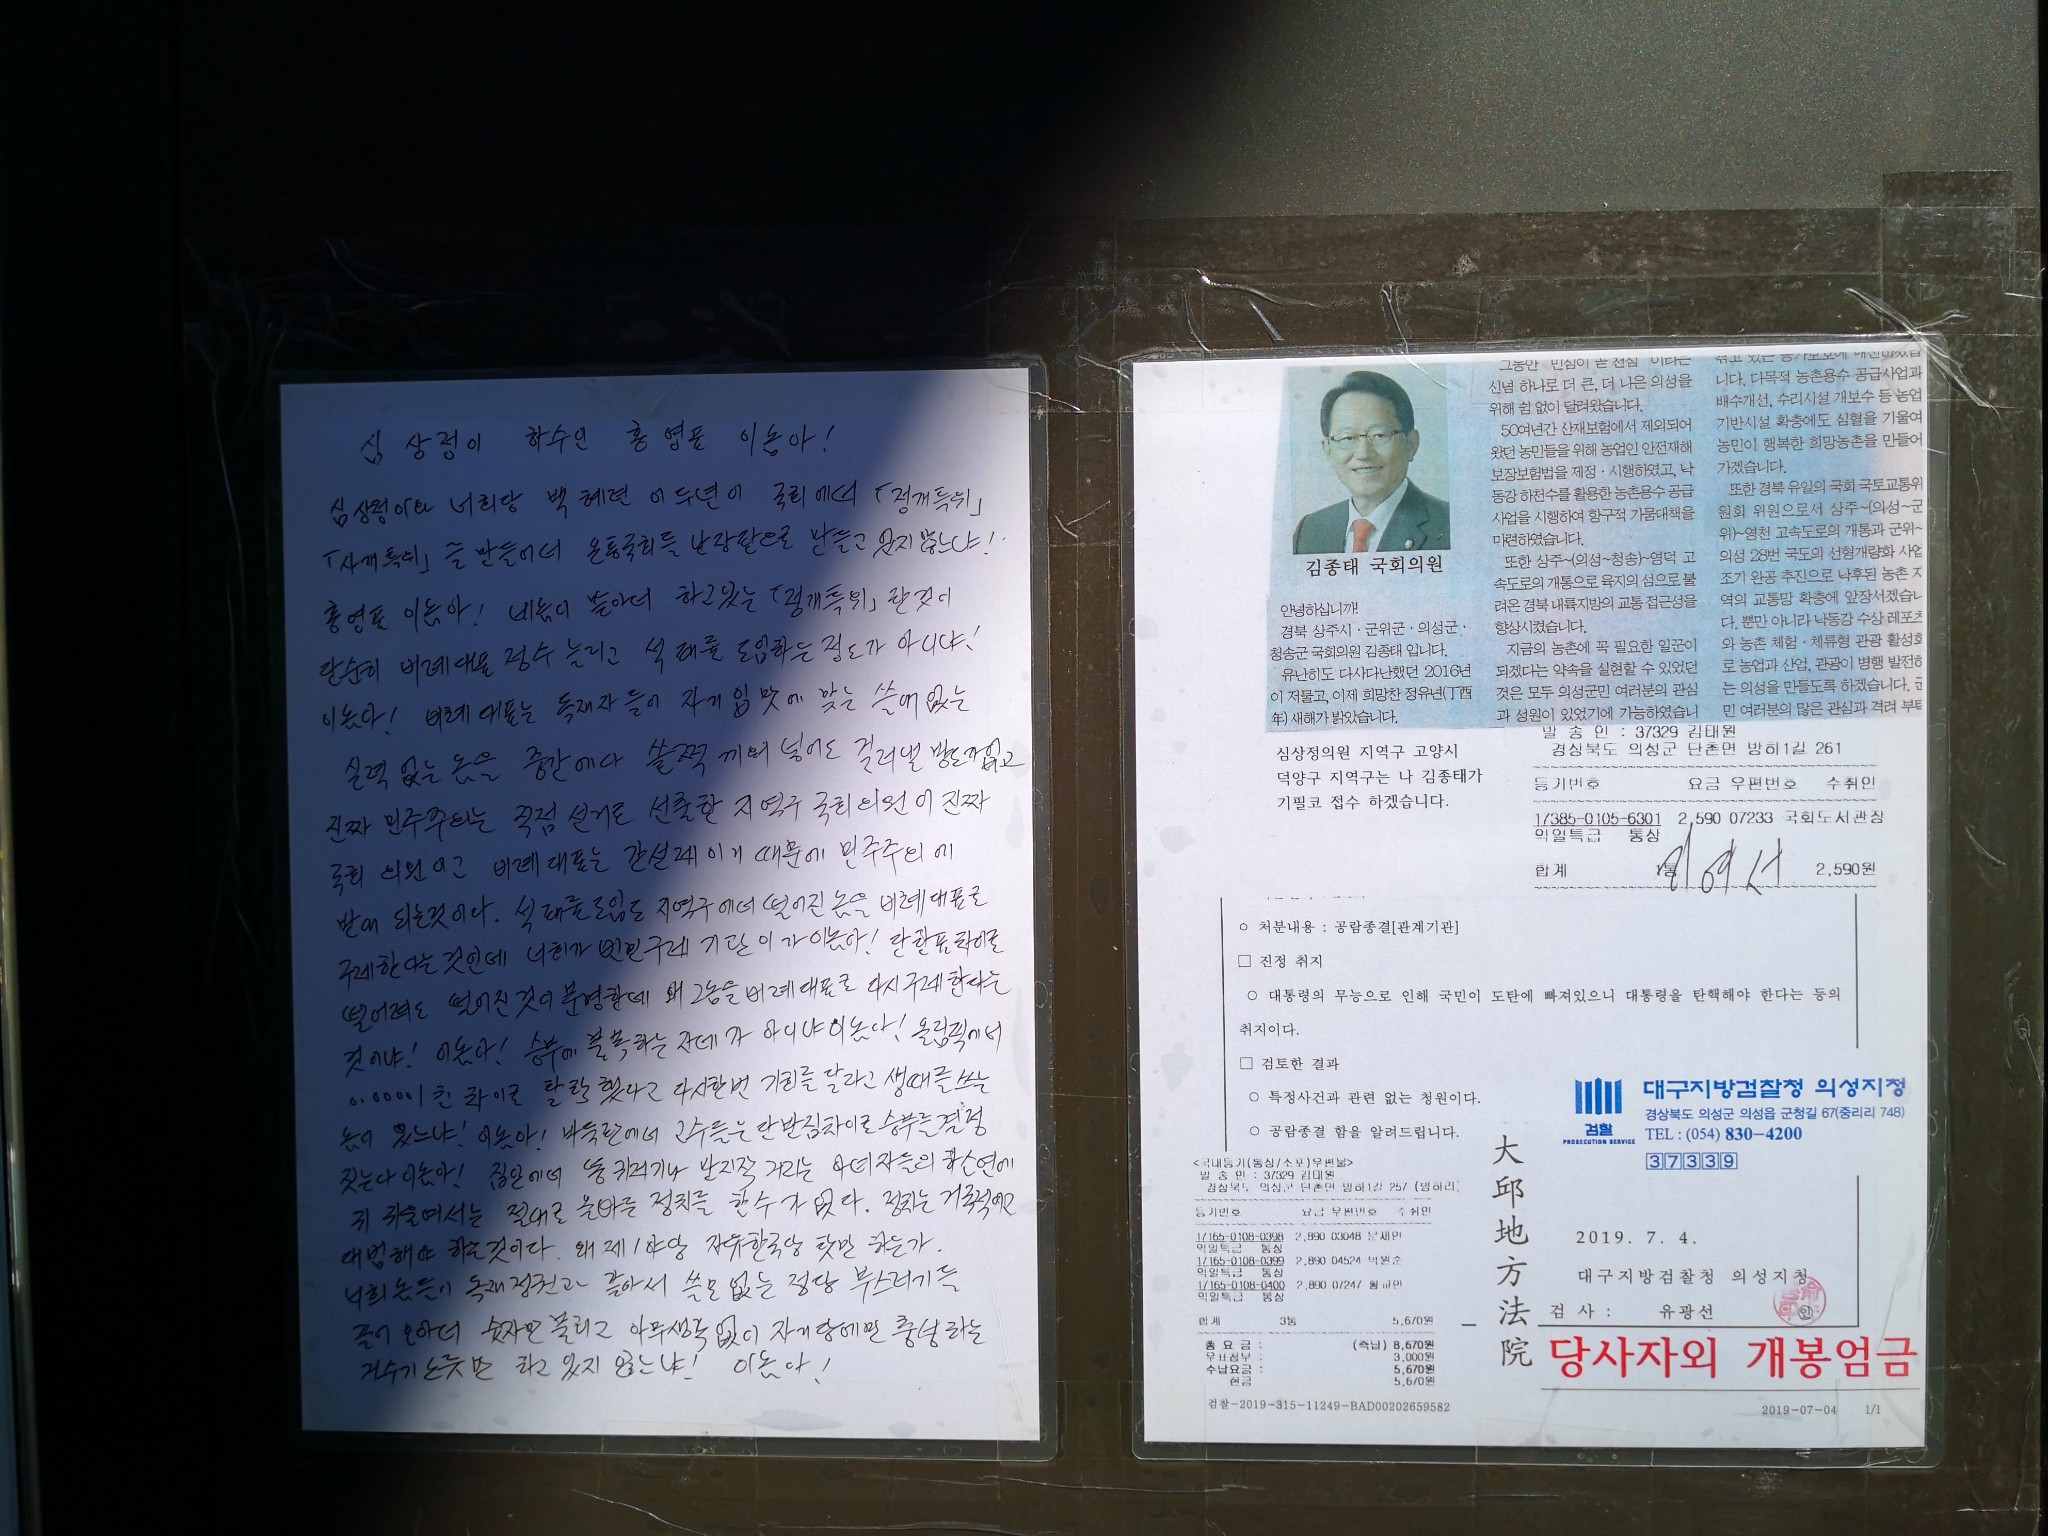 심상정이 하수인 홍영표 이놈아!
심상정이와 너희당 백혜련 이 두년이 국회에서 「정개특위」
「사개특위」를 만들어서 온통국회를 난장판으로 만들고 있지 않느냐!
홍영표 이놈아! 네놈이 하고있는 「정개특위」란것이
단순히 비례대표 정수 늘리고 석패률 도입하는 정도가 아니냐!
이놈아! 비례대표는 독재자들이 자기 입맛에 맞는 쓸데없는
실력 없는 놈을 중간에다 쓸쩍 끼워 넣어도 걸러낼 방도가없고
진짜 민주주의는 직접 선거로 선출한 지역구 국회의원이 진짜
국회의원이고 비례대표는 간선제이기 때문에 민주주의에
반해 되는것이다. 석패률도입도 지역구에서 떨어진 놈을 비례대표로
구제한다는것인데 너희가 빈민구제 기관이가 이놈아! 단 한표차이로
떨어져도 떨어진것이 분명한데 왜 그놈을 비례대표로 다시구제한다는
것이냐! 이놈아! 승부에 불복하는 자체가 아니냐 이놈아! 올림픽에서
0.00001초 차이로 탈락했다고 다시한번 기회를 달라고 생때를 쓰는
놈이 있느냐! 이놈아! 바둑판에서 고수들은 단 반집차이로 승부를결정
짓는다 이놈아! 집안에서 반지작 거리는 아녀자들의
절대로 올바른 정치를 할수가 없다. 정치는 거국적이고
대범해야 하는것이다. 왜 제1야당 자유한국당 탓만 하는가.
너희놈들이 독재정권과 같아서 쓸모없는 정당 부스러기들
끌어 모아서 숫자만 불리고 아무생각없이 자기당에만 충성하는
거수기노릇만 하고 있지 않느냐! 이놈아!
김종태 국회의원
안녕하십니까!
경북 상주시·군위군·의성군·
청송군 국회의원 김종태 입니다.
유난히도 다사다난했던 2016년
이 저물고, 이제 희망찬 정유년(丁酉
年) 새해가 밝았습니다.
그동안 '민심이 곧 천심' 이라는
신념 하나로 더 큰, 더 나은 의성을
위해 쉼 없이 달려왔습니다.
50여년간 산재보험에서 제외되어
왔던 농민들을 위해 농업인 안전재해
보장보험법을 제정·시행하였고, 낙
동강 하천수를 활용한 농촌용수 공급
사업을 시행하여 항구적 가뭄대책을
마련하였습니다.
또한 상주~(의성~청송)~영덕 고
속도로의 개통으로 육지의 섬으로 불
려온 경북 내륙지방의 교통 접근성을
향상시켰습니다.
지금의 농촌에 꼭 필요한 일꾼이
되겠다는 약속을 실현할 수 있었던
것은 모두 의성군민 여러분의 관심
과 성원이 있었기에 가능하였습니
니다. 다목적 농촌용수 공급사업과
배수개선, 수리시설 개보수 등 농업
기반시설 확충에도 심혈을 기울여
농민이 행복한 희망농촌을 만들어
가겠습니다.
또한 경북 유일의 국회 국토교통위
원회 위원으로서 상주~(의성~군
위)~영천 고속도로의 개통과 군위~
의성 28번 국도의 선형개량화 사업
조기 완공 추진으로 낙후된 농촌 지
역의 교통망 확충에 앞장서겠습니
다. 뿐만 아니라 낙동강 수상 레포츠
와 농촌 체험·체류형 관광 활성화
로 농업과 산업, 관광이 병행 발전하
는 의성을 만들도록 하겠습니다. 군
민 여러분의 많은 관심과 격려 부탁
심상정의원 지역구 고양시
덕양구 지역구는 나 김종태가
기필코 접수 하겠습니다.
발 송 인 : 37329 김태원
경상북도 의성군 단촌면 방하1길 261
등기번호 요금 우편번호 수취인
17385-0105-6301 2,590 07233 국회도서관장
익일특급 통상
합계 1통 2,590원
○ 처분내용 : 공람종결[관계기관]
□ 진정 취지
○ 대통령의 무능으로 인해 국민이 도탄에 빠져있으니 대통령을 탄핵해야 한다는 등의
취지이다.
□ 검토한 결과
○ 특정사건과 관련 없는 청원이다.
○ 공람종결 함을 알려드립니다.
검찰
PROSECUTION SERVICE
대구지방검찰청 의성지청
경상북도 의성군 의성읍 군청길 67(중리리 748)
TEL : (054) 830-4200
37339
<국내등기(통상/소포)우편물>
발 송 인 : 37329 김태원
경상북도 의성군 단촌면 방하1길 257 (방하리)
등기번호 요금 우편번호 수취인
17165-0108-0398 2,890 03048 문재인
익일특급 통상
17165-0108-0399 2,890 04524 박원순
익일특급 통상
17165-0108-0400 2,890 07247 황교안
익일특급 통상
합계 3통 5,670원
총 요 금 : (즉납) 8,670원
우표첩부 : 3,000원
수납요금 : 5,670원
현금 5,670원
大邱地方法院
2019. 7. 4.
대구지방검찰청 의성지청
검 사 : 유광선 인
당사자외 개봉엄금
검찰-2019-315-11249-BAD00202659582
2019-07-04 1/1